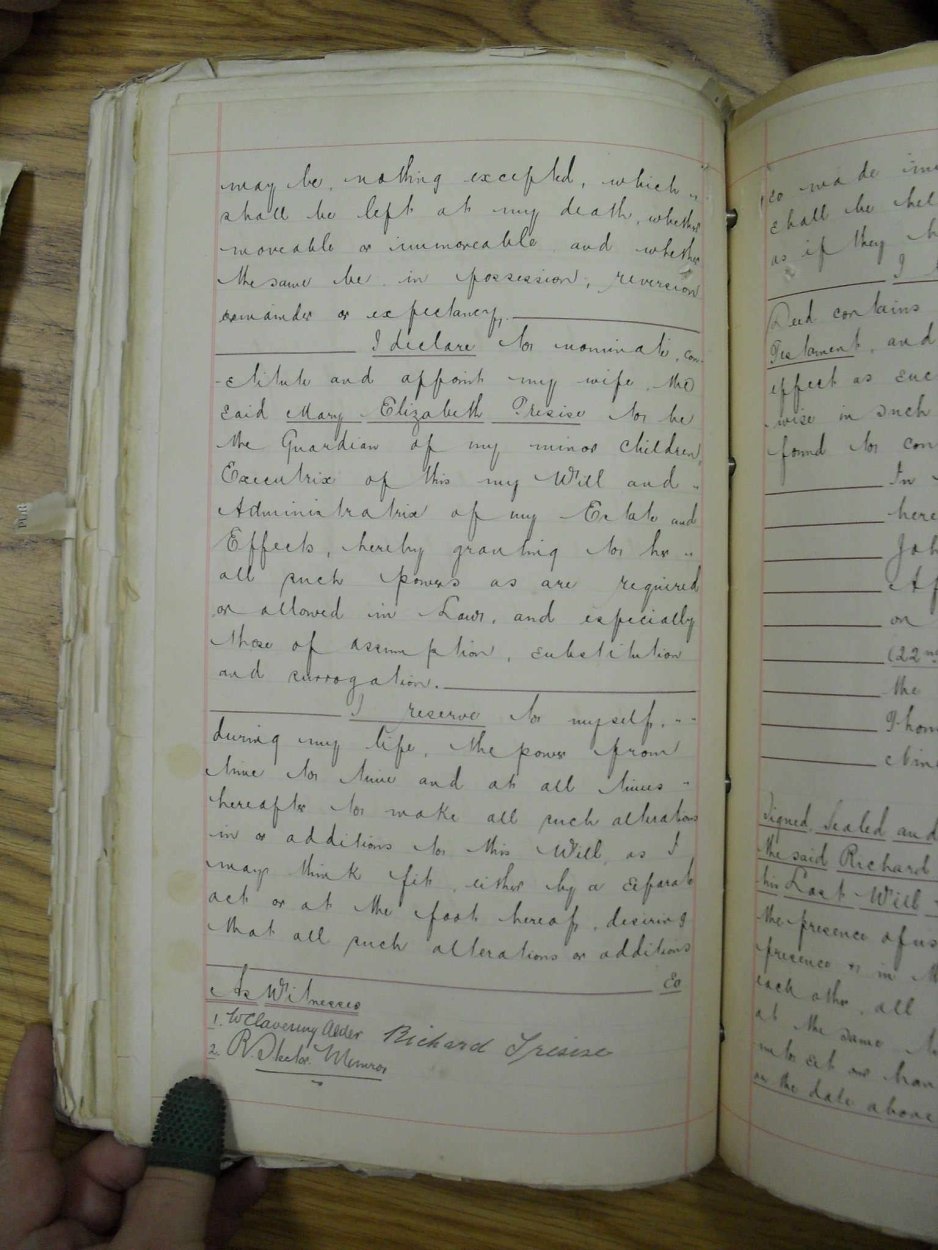 may be, nothing excepted, which "
shall be left at my death, whether
moveable or immoveable and whether
the same be in possession, reversion
remainder or expectancy.
I declare to nominate, con-
-stitute and appoint my wife, the
said Mary Elizabeth Tresise to be
the Guardian of my minor children,
Executrix of this my Will and "
Administratrix of my Estate and
Effects, hereby granting to her "
all such powers as are required
or allowed in Law, and especially
those of assumption, substitution
and surrogation.
I reserve to myself, "
during my life, the power from
time to time and at all times "
hereafter to make all such alterations
in or additions to this Will, as I
may think fit, either by a separate
act or at the foot hereof, desiring
that all such alterations or additions
so
As Witnesses
1. W Clavering Alder
Richard Tresise
2. R. Munro
so made
shall be hel
as if they h
I
Deed contains
Testament, and
effect as suc
wise in such
found to con
In
here
Joh
Af
on
(22nd
the
Thou
Nin
Signed, Sealed and
the said Richard
his Last Will
the presence of us
presence & in th
each other, all
at the same
unto set our han
on the date above